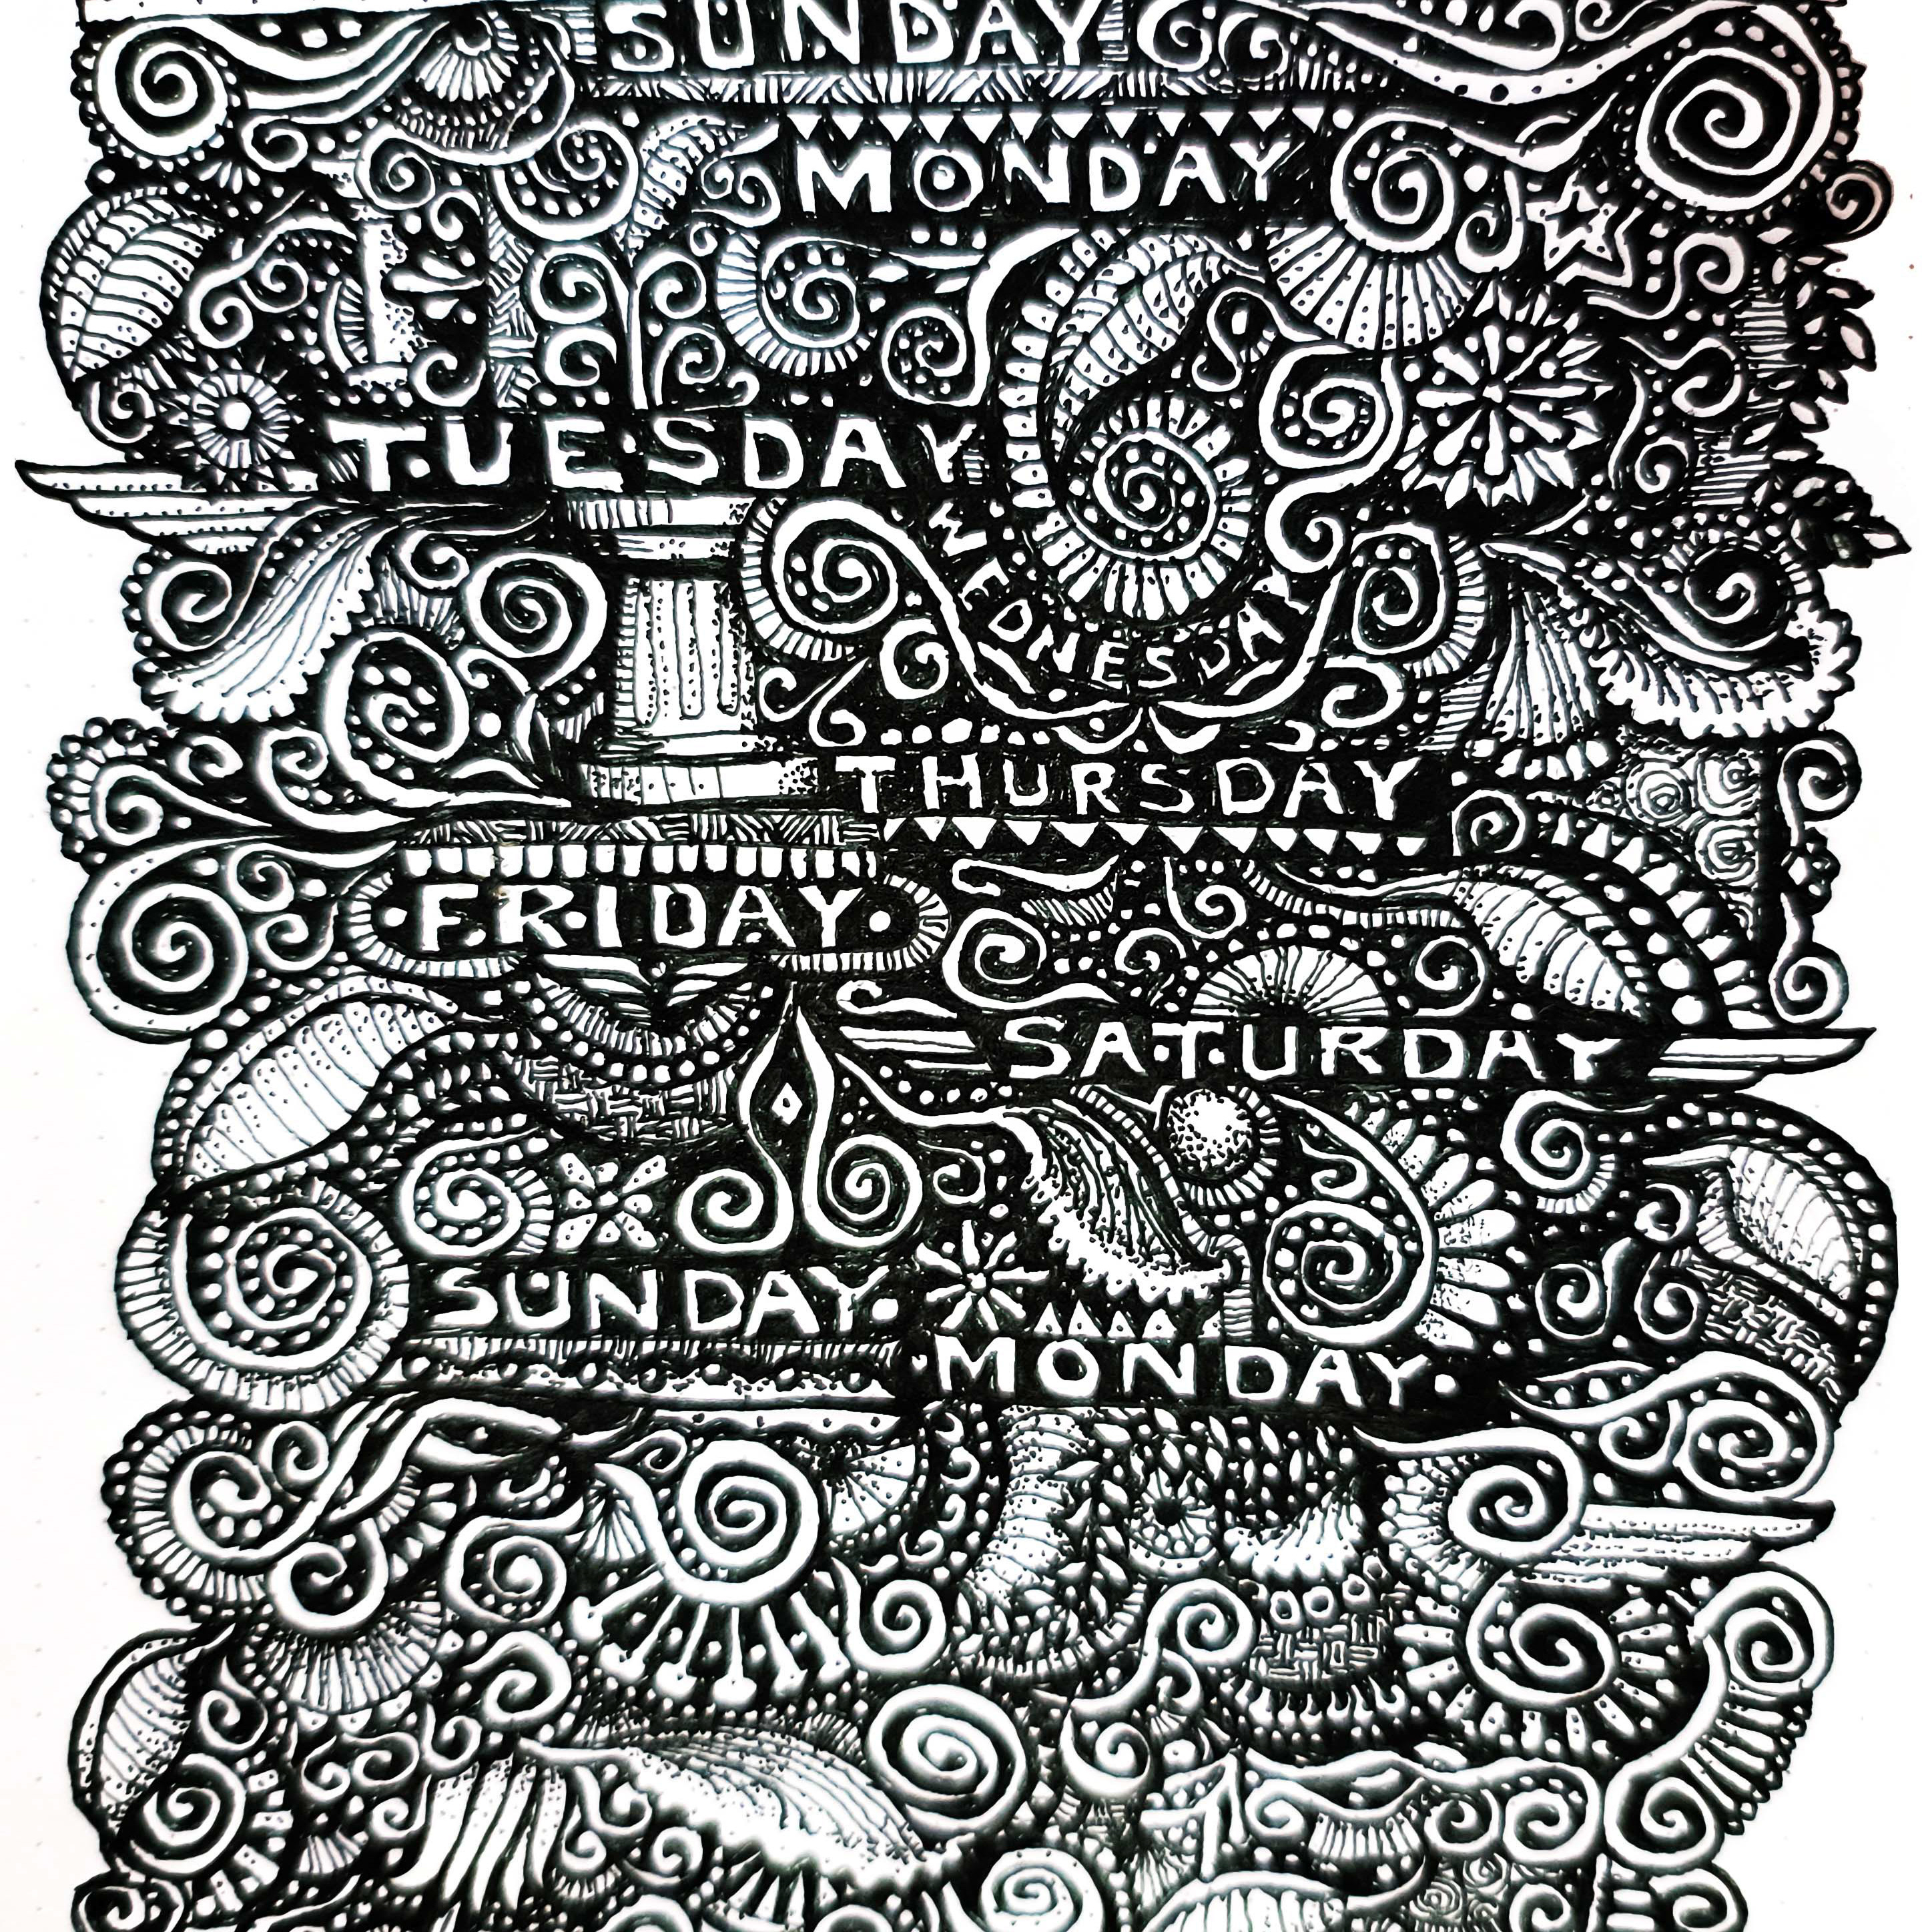 SUNDAY
MONDAY
TUESDAY
WEDNESDAY
THURSDAY
FRIDAY
SATURDAY
SUNDAY
MONDAY